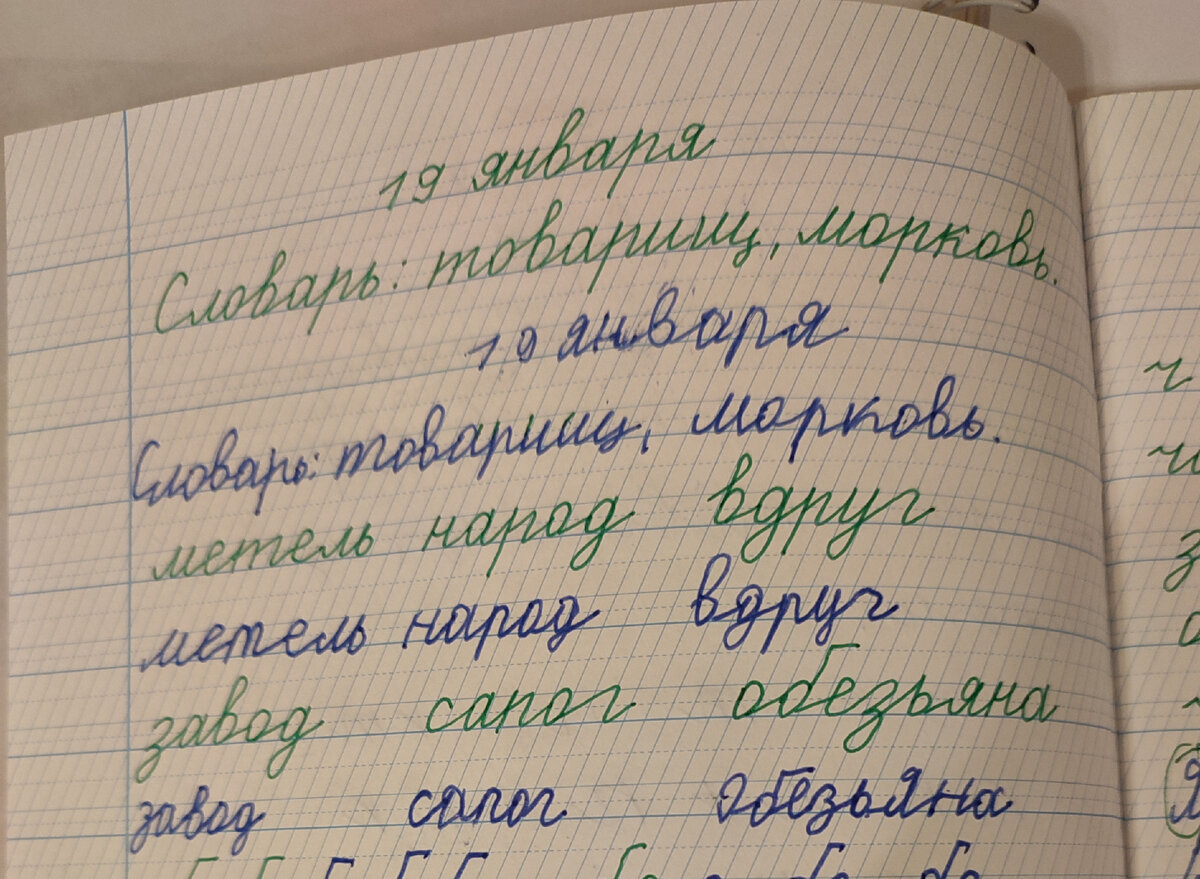 19 января
Словарь: товарищ, морковь.
19 января
Словарь: товарищ, морковь.
метель народ вдруг
метель народ вдруг
завод сапог обезьяна
завод сапог обезьяна